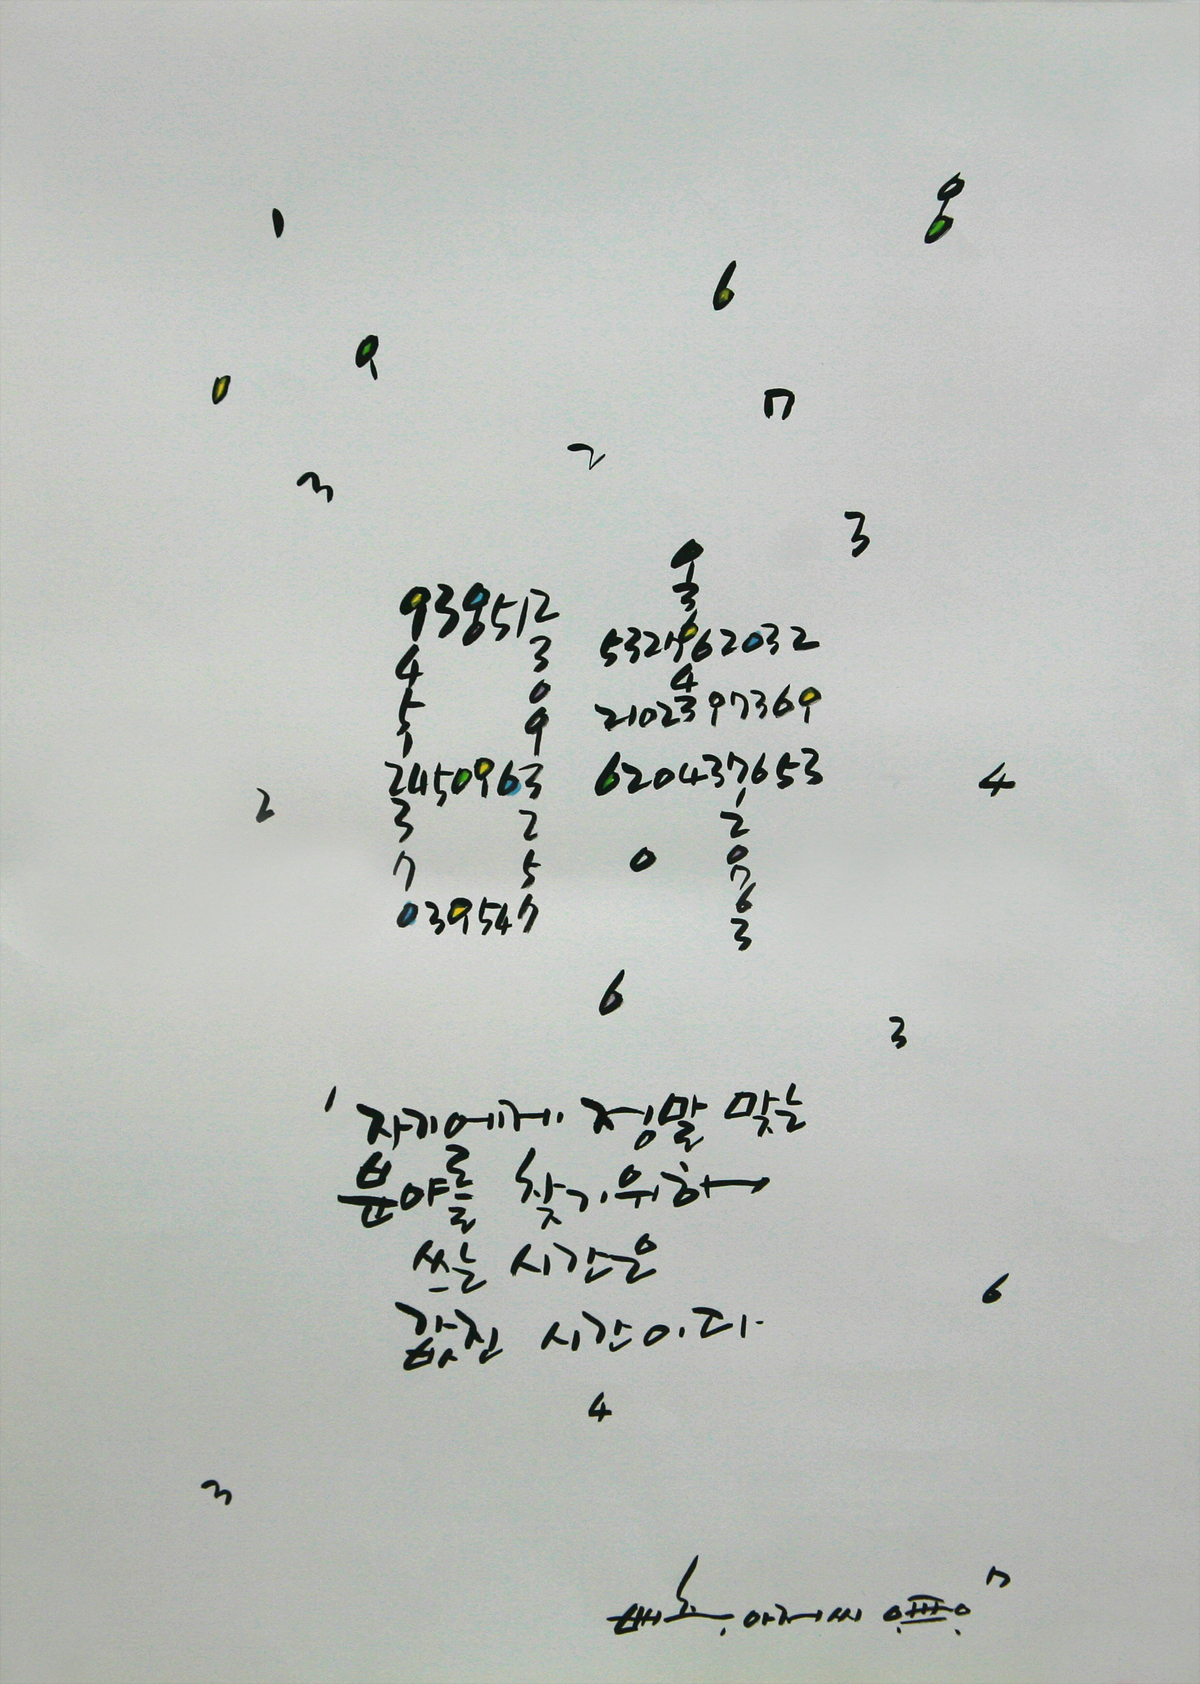 1
8
6
9
0
7
2
3
3
938512
4 3
5 0
9 9
2450963
3 2
7 5
039547
9
3
6
5321962032
4
2102397369
620437653
1
2
0
0
7
6
3
2
4
6
3
1
자기에게 정말 맞는
분야를 찾기위해
쓰는 시간은
값진 시간이다.
6
4
3
7